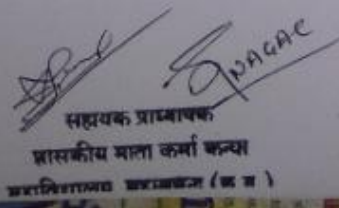 NAGAC
सहायक प्राध्यापक
शासकीय माता कर्मा कन्या
महाविद्यालय महासमुन्द (छ ग )